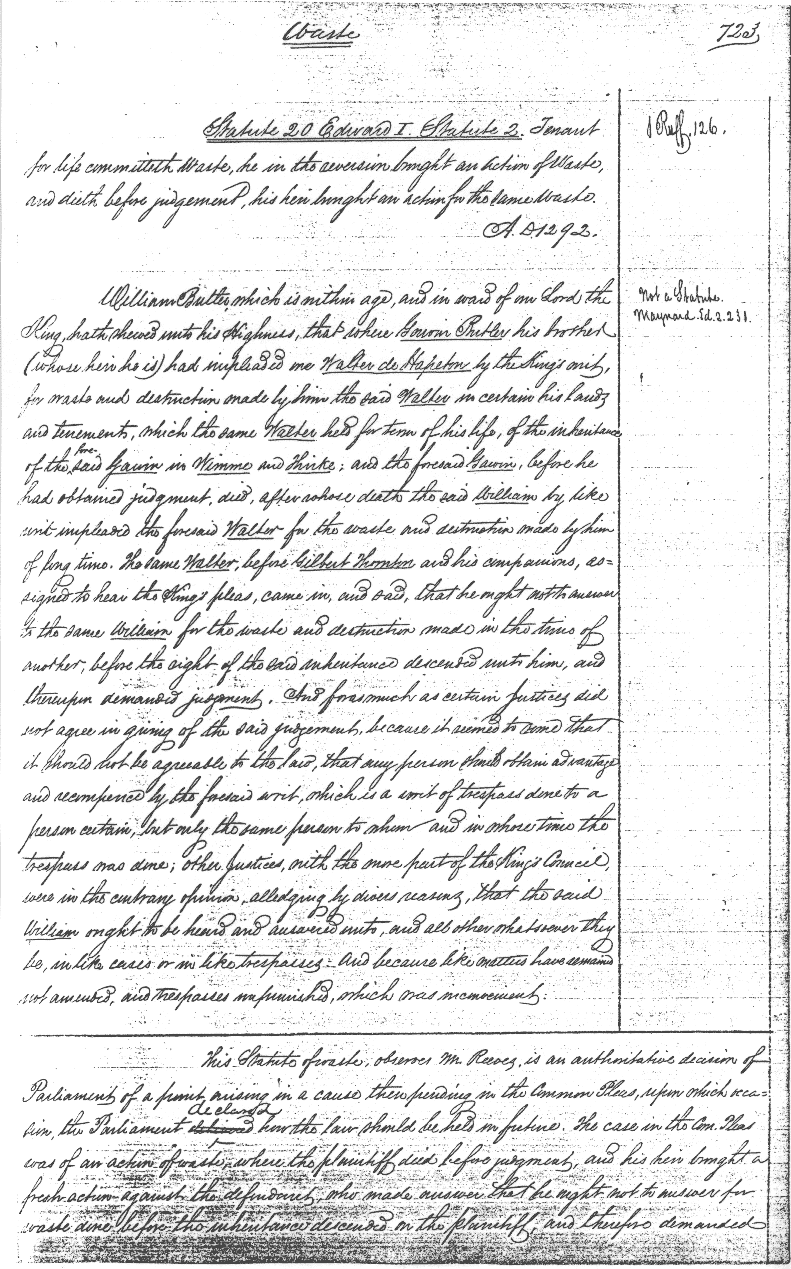 Waste
723
Statute 20 Edward I. Statute 2. Tenant
1 Ruff. 126.
for life committeth Waste, he in the reversion bringt an action of Waste,
and dieth before judgement, his heir bringt an action for the same Waste.
A.D. 1292.
William Butler, which is within age, and in ward of our Lord the
Not a Statute.
Maynard. Ed. 2. 231.
King, hath shewed unto his Highness, that where Gowon Butler his brother
(whose heir he is) had impleaded one Walter de Hopeton by the King's writ,
for waste and destruction made by him the said Walter in certain his lands
and tenements, which the same Walter held for term of his life, of the inheritance
of the fore-said Gawin in Wimme and Hinke; and the foresaid Gawin, before he
had obtained judgment, died, after whose death the said William by like
writ impleaded the foresaid Walter for the waste and destruction made by him
of long time. The same Walter, before Gilbert Thornton and his companions, as=
signed to hear the King's pleas, came in, and said, that he ought not to answer
to the same William for the waste and destruction made in the time of
another, before the right of the said inheritance descended unto him, and
thereupon demanded judgment. And forasmuch as certain Justices did
not agree in giving of the said judgement, because it seemed to some that
it should not be agreeable to the law, that any person should obtain advantage
and recompence by the foresaid writ, which is a writ of trespass done to a
person certain, but only the same person to whom and in whose time the
trespass was done; other Justices, with the more part of the King's Council,
were in the contrary opinion, alledging by divers reasons, that the said
William ought to be heard and answered unto, and all other whatsoever they
be, in like cases or in like trespasses - And because like matters have remained
not amended, and trespasses unpunished, which was inconvenient.
This Statute of waste, observes Mr. Reeves, is an authoritative decision of
Parliament of a point, arising in a cause then pending in the Common Pleas, upon which occa=
declared
sion, the Parliament how the law should be held in future. The case in the Com. Pleas
was of an action of waste, where the plaintiff died before judgment, and his heir brought a
fresh action against the defendant, who made answer that he ought not to answer for
waste done before the inheritance descended on the plaintiff, and therefore demanded